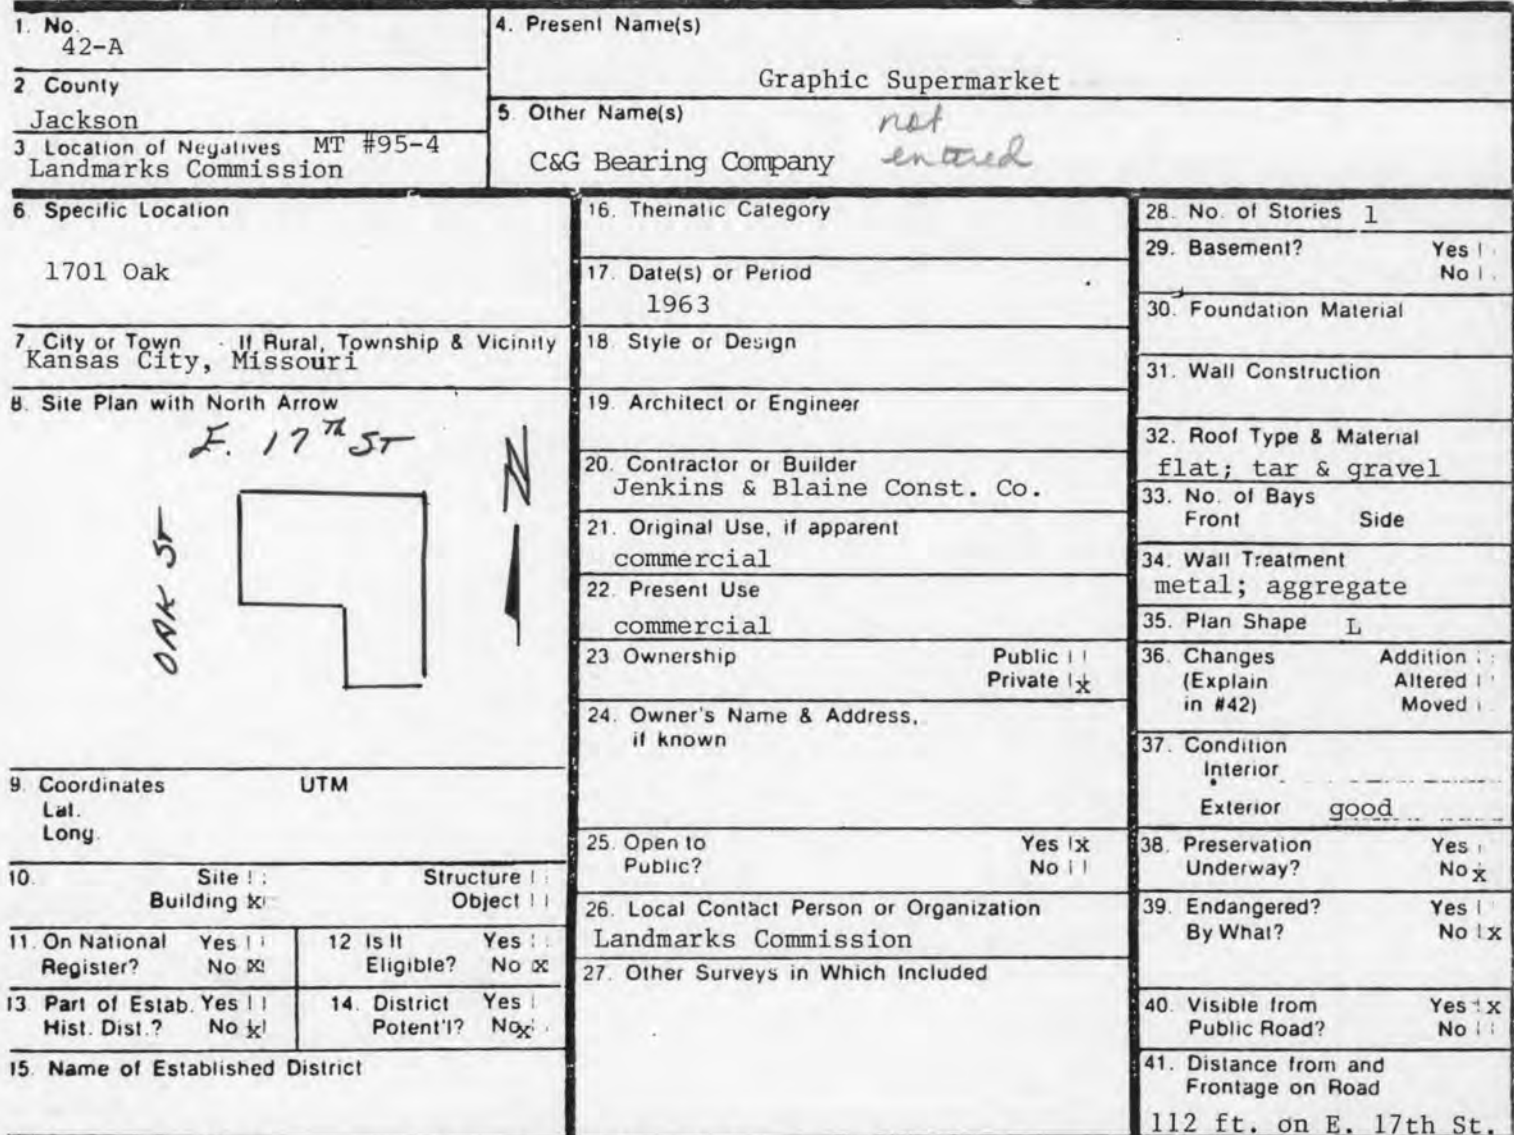 1. No.
42-A
2 County
Jackson
3 Location of Negatives MT #95-4
Landmarks Commission
4. Present Name(s)
Graphic Supermarket
5. Other Name(s)
C&G Bearing Company
not
entered
6. Specific Location
1701 Oak
7. City or Town If Rural, Township & Vicinity
Kansas City, Missouri
8. Site Plan with North Arrow
E. 17th ST
N
OAK ST
9. Coordinates UTM
Lat.
Long.
10. Site Structure
Building x Object
11. On National Yes
Register? No x
12 Is It Yes
Eligible? No x
13. Part of Estab. Yes
Hist. Dist.? No x
14. District Yes
Potent'l? No x
15. Name of Established District
16. Thematic Category
17. Date(s) or Period
1963
18. Style or Design
19. Architect or Engineer
20. Contractor or Builder
Jenkins & Blaine Const. Co.
21. Original Use, if apparent
commercial
22. Present Use
commercial
23 Ownership Public
Private x
24. Owner's Name & Address,
if known
25. Open to Yes x
Public? No
26. Local Contact Person or Organization
Landmarks Commission
27. Other Surveys in Which Included
28. No. of Stories 1
29. Basement? Yes
No
30. Foundation Material
31. Wall Construction
32. Roof Type & Material
flat; tar & gravel
33. No. of Bays
Front Side
34. Wall Treatment
metal; aggregate
35. Plan Shape L
36. Changes Addition
(Explain Altered
in #42) Moved
37. Condition
Interior
Exterior good
38. Preservation Yes
Underway? No x
39. Endangered? Yes
By What? No x
40. Visible from Yes x
Public Road? No
41. Distance from and
Frontage on Road
112 ft. on E. 17th St.